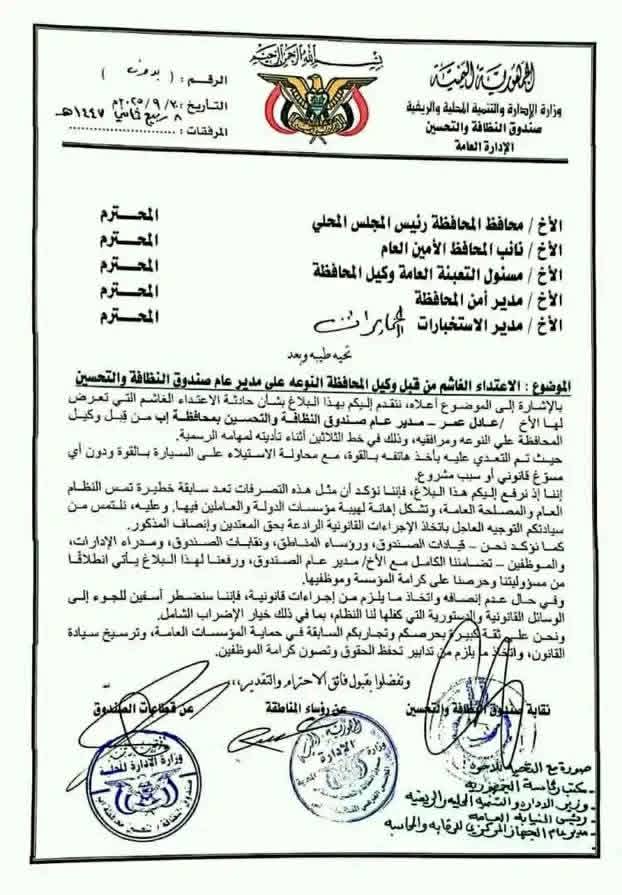 بسم الله الرحمن الرحيم
الجمهورية اليمنية
وزارة الإدارة والتنمية المحلية والريفية
صندوق النظافة والتحسين
الإدارة العامة
الرقم: ( بدون )
التاريخ: ٢٠٢٥/٩/٣٠م
٨ ربيع ثاني ١٤٤٧هـ
المرفقات:
الأخ / محافظ المحافظة رئيس المجلس المحلي المحترم
الأخ / نائب المحافظ الأمين العام المحترم
الأخ / مسئول التعبئة العامة وكيل المحافظة المحترم
الأخ / مدير أمن المحافظة المحترم
الأخ / مدير الاستخبارات المحترم
تحيه طيبه وبعد
الموضوع : الاعتداء الغاشم من قبل وكيل المحافظة النوعه على مدير عام صندوق النظافة والتحسين
بالإشارة إلى الموضوع أعلاه، نتقدم إليكم بهذا البلاغ بشأن حادثة الاعتداء الغاشم التي تعرض
لها الأخ /عادل عمر – مدير عام صندوق النظافة والتحسين بمحافظة إب من قبل وكيل
المحافظة علي النوعه ومرافقيه، وذلك في خط الثلاثين أثناء تأديته لمهامه الرسمية.
حيث تم التعدي عليه بأخذ هاتفه بالقوة، مع محاولة الاستيلاء على السيارة بالقوة ودون أي
مسوّغ قانوني أو سبب مشروع.
إننا إذ نرفع إليكم هذا البلاغ، فإننا نؤكد أن مثل هذه التصرفات تعد سابقة خطيرة تمس النظام
العام والمصلحة العامة، وتشكل إهانة لهيبة مؤسسات الدولة والعاملين فيها. وعليه، نلتمس من
سيادتكم التوجيه العاجل باتخاذ الإجراءات القانونية الرادعة بحق المعتدين وإنصاف المذكور.
كما نؤكد نحن – قيادات الصندوق، ورؤساء المناطق، ونقابات الصندوق، ومدراء الإدارات،
والموظفين – تضامننا الكامل مع الأخ/ مدير عام الصندوق، ورفعنا لهذا البلاغ يأتي انطلاقًا
من مسؤوليتنا وحرصنا على كرامة المؤسسة وموظفيها.
وفي حال عدم إنصافه واتخاذ ما يلزم من إجراءات قانونية، فإننا سنضطر آسفين للجوء إلى
الوسائل القانونية والدستورية التي كفلها لنا النظام، بما في ذلك خيار الإضراب الشامل.
ونحن على ثقة كبيرة بحرصكم وتجاربكم السابقة في حماية المؤسسات العامة، وترسيخ سيادة
القانون، واتخاذ ما يلزم من تدابير تحفظ الحقوق وتصون كرامة الموظفين.
وتفضلوا بقبول فائق الاحترام والتقدير،،،
نقابة صندوق النظافة والتحسين
عن رؤساء المناطقة
عن قطاعات الصندوق
صورة مع التحيه للاخوة
- مكتب رئاسة الجمهورية
- وزير الادارة والتنمية المحليه والريفيه
- رئيس النيابة العامه
- مدير عام الجهاز المركزي للرقابه والمحاسبه
وزارة الإدارة المحلية